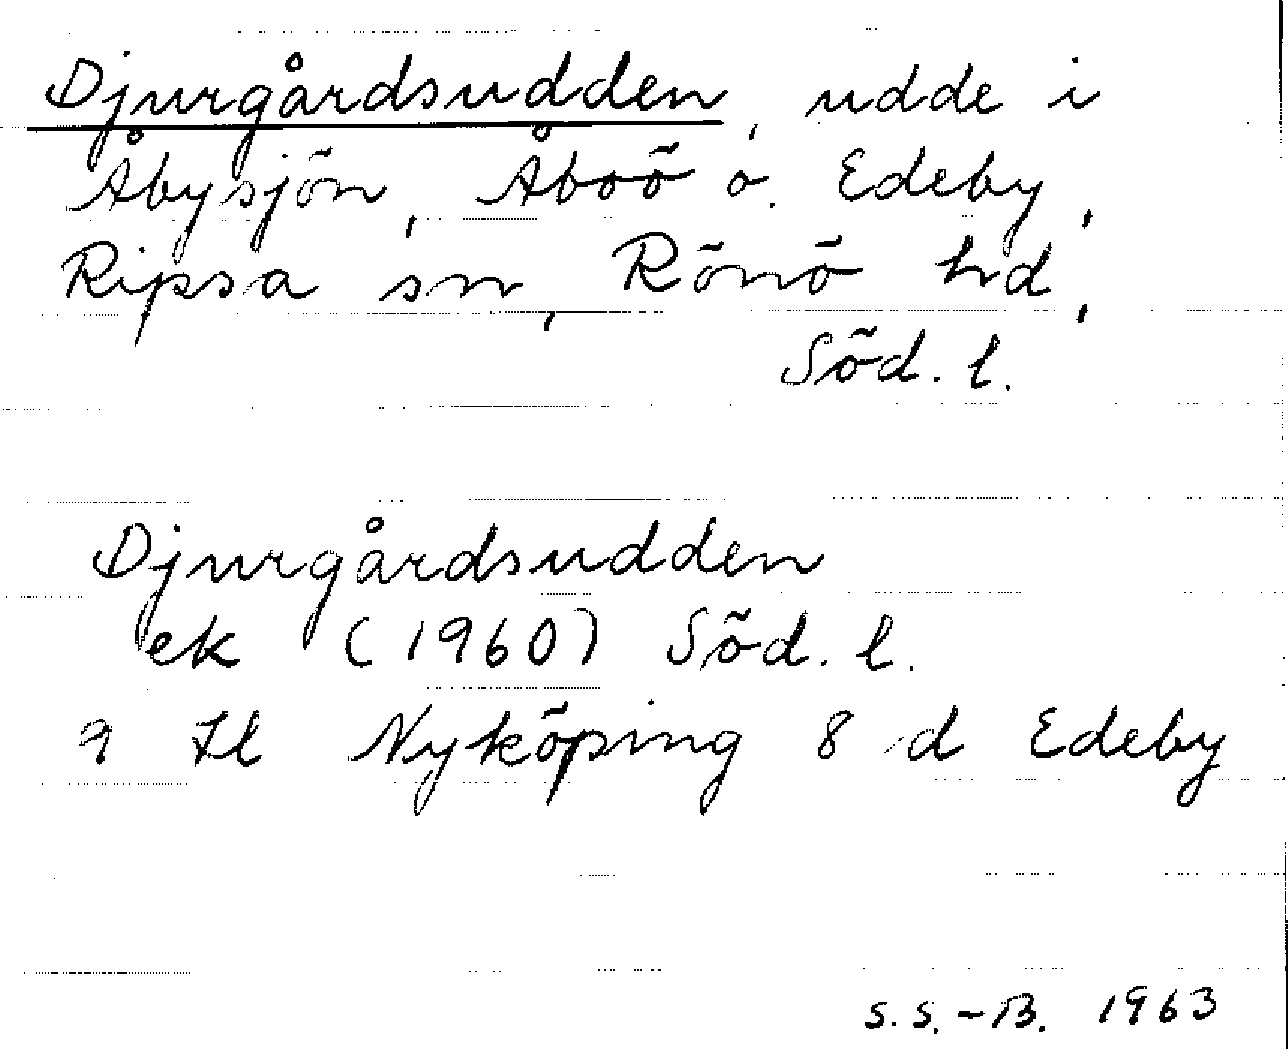 Djurgårdsudden, udde i
Åbysjön, Åboö o. Edeby,
Ripsa sn, Rönö hd,
Söd. l.
Djurgårdsudden
ek (1960) Söd. l.
9 Nyköping 8 d Edeby
S.S.-B. 1963